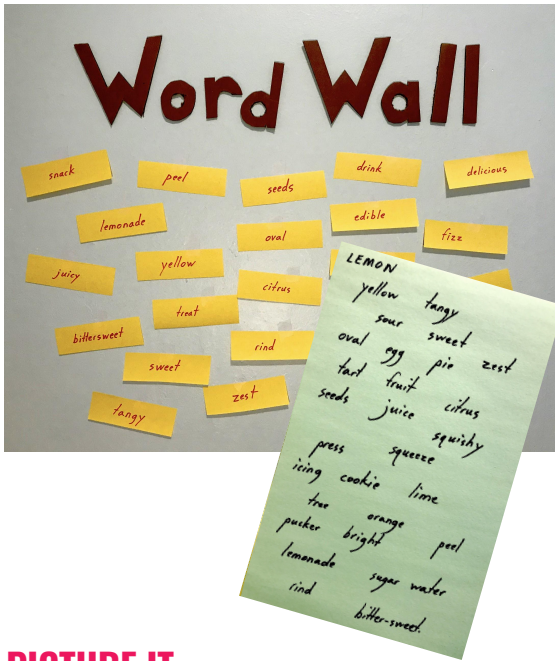 Word Wall
snack peel seeds drink delicious
lemonade oval edible fizz
juicy yellow citrus
bittersweet treat rind
sweet zest
tangy
LEMON
yellow tangy
sour sweet
oval egg pie zest
tart fruit
seeds juice citrus
squishy
press squeeze
icing cookie lime
tree orange
pucker bright peel
lemonade sugar water
rind
bitter-sweet.